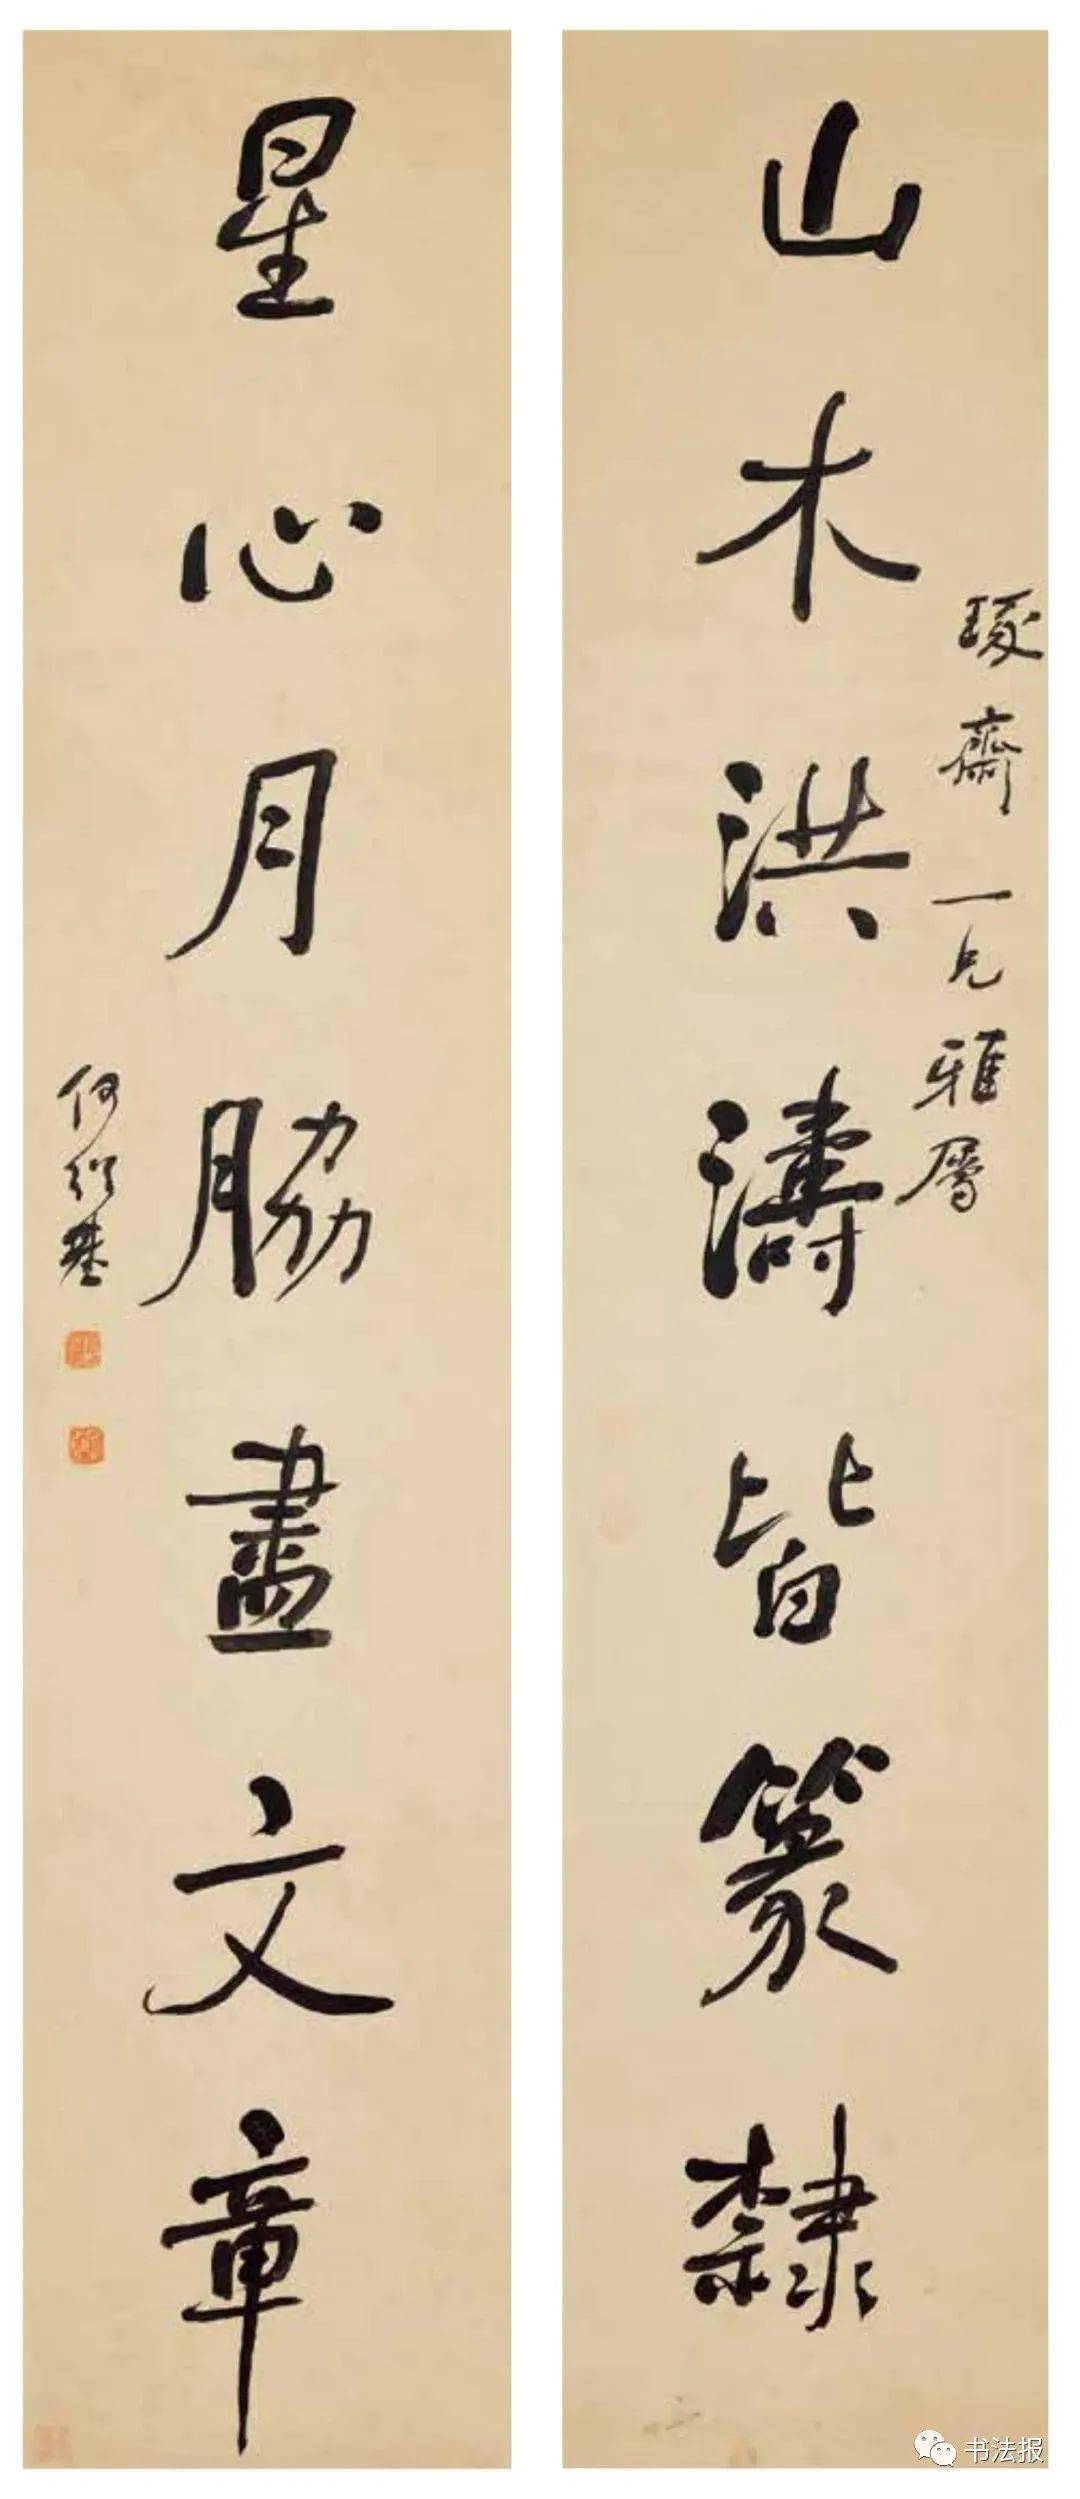 琢齋一兄雅屬
山木洪濤皆篆隸
星心月脇盡文章
何紹基
书法报